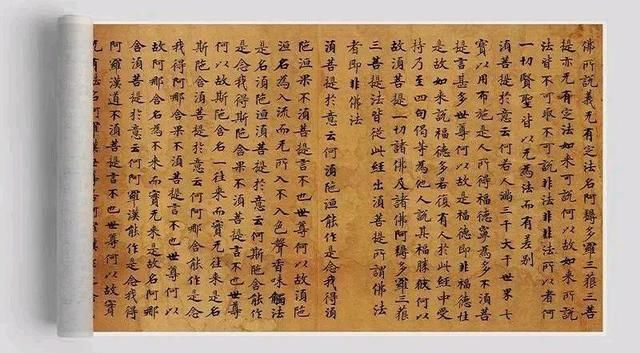 佛所說義无有定法名阿耨多羅三藐三菩
提亦无有定法如來可說何以故如來所說
法皆不可取不可說非法非非法所以者何
一切賢聖皆以无為法而有差別
須菩提於意云何若人滿三千大千世界七
寶以用布施是人所得福德寧為多不須菩
提言甚多世尊何以故是福德即非福德性
是故如來說福德多若復有人於此經中受
持乃至四句偈等為他人說其福勝彼何以
故須菩提一切諸佛及諸佛阿耨多羅三藐
三菩提法皆從此經出須菩提所謂佛法
者即非佛法
須菩提於意云何須陀洹能作是念我得須
陀洹果不須菩提言不也世尊何以故須陀
洹名為入流而无所入不入色聲香味觸法
是名須陀洹須菩提於意云何斯陀含能作
是念我得斯陀含果不須菩提言不也世尊
何以故斯陀含名一往來而實无往來是名
斯陀含須菩提於意云何阿那含能作是念
我得阿那含果不須菩提言不也世尊何以
故阿那含名為不來而實无來是故名阿那
含須菩提於意云何阿羅漢能作是念我得
阿羅漢道不須菩提言不也世尊何以故實
无有法名阿羅漢世尊若阿羅漢作是念